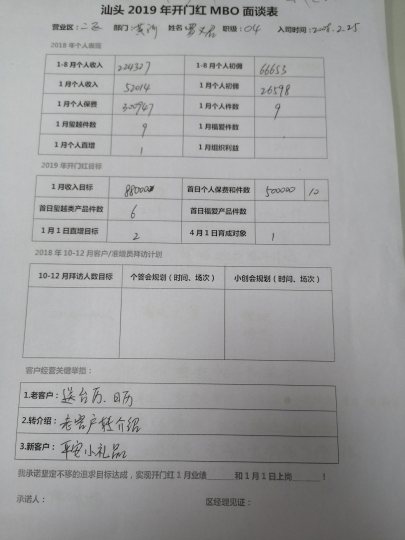 汕头 2019 年开门红 MBO 面谈表
营业区：二区 部门：黄河 姓名 职级：04 入司时间：2008.2.25
2018 年个人表现
1-8 月个人收入 224327 1-8 月个人初佣 66653
1 月个人收入 52014 1 月个人初佣 26598
1 月个人保费 300947 1 月个人件数 9
1 月玺越件数 9 1 月福盈件数
1 月个人直增 1 1 月组织利益
2019 年开门红目标
1 月收入目标 880000 首日个人保费和件数 500000 10
首日玺越类产品件数 6 首日福盈产品件数
1 月 1 日直增目标 2 4 月 1 日育成对象 1
2018 年 10-12 月客户/准增员拜访计划
10-12 月拜访人数目标 个答会规划（时间、场次） 小创会规划（时间、场次）
客户经营关键举措：
1.老客户：送台历、日历
2.转介绍：老客户转介绍
3.新客户：平安小礼品
我承诺坚定不移的追求目标达成，实现开门红 1 月业绩______和 1 月 1 日上岗______！
承诺人： 区经理见证：